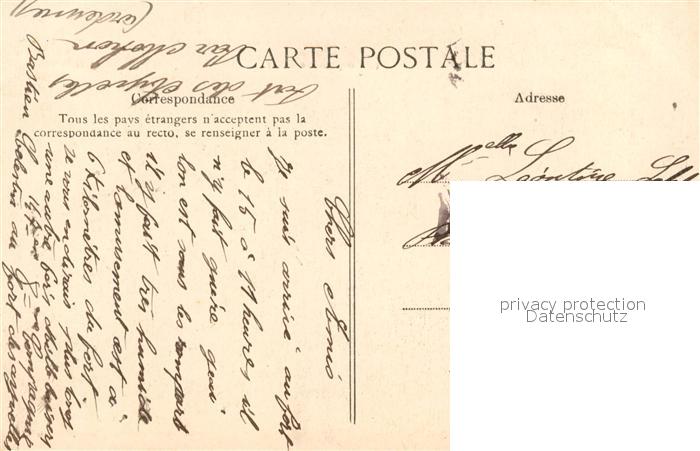 CARTE POSTALE
Correspondance
Tous les pays étrangers n'acceptent pas la
correspondance au recto, se renseigner à la poste.
Adresse
Melle Léontine
privacy protection
Datenschutz
Chers Amis
Je suis arrivé au fort
le 15 à 11 heures il
n'y fait guère gai
lon est sous les rempart
il y fait très humide
et lamusement est à
6 Kilomètres du fort
je vous en dirais plus long
une autre fois
14e 8e Compagnie
au fort des ayvelles
Bastien
Fort des Ayvelles
Par Mohon
(Ardennes)